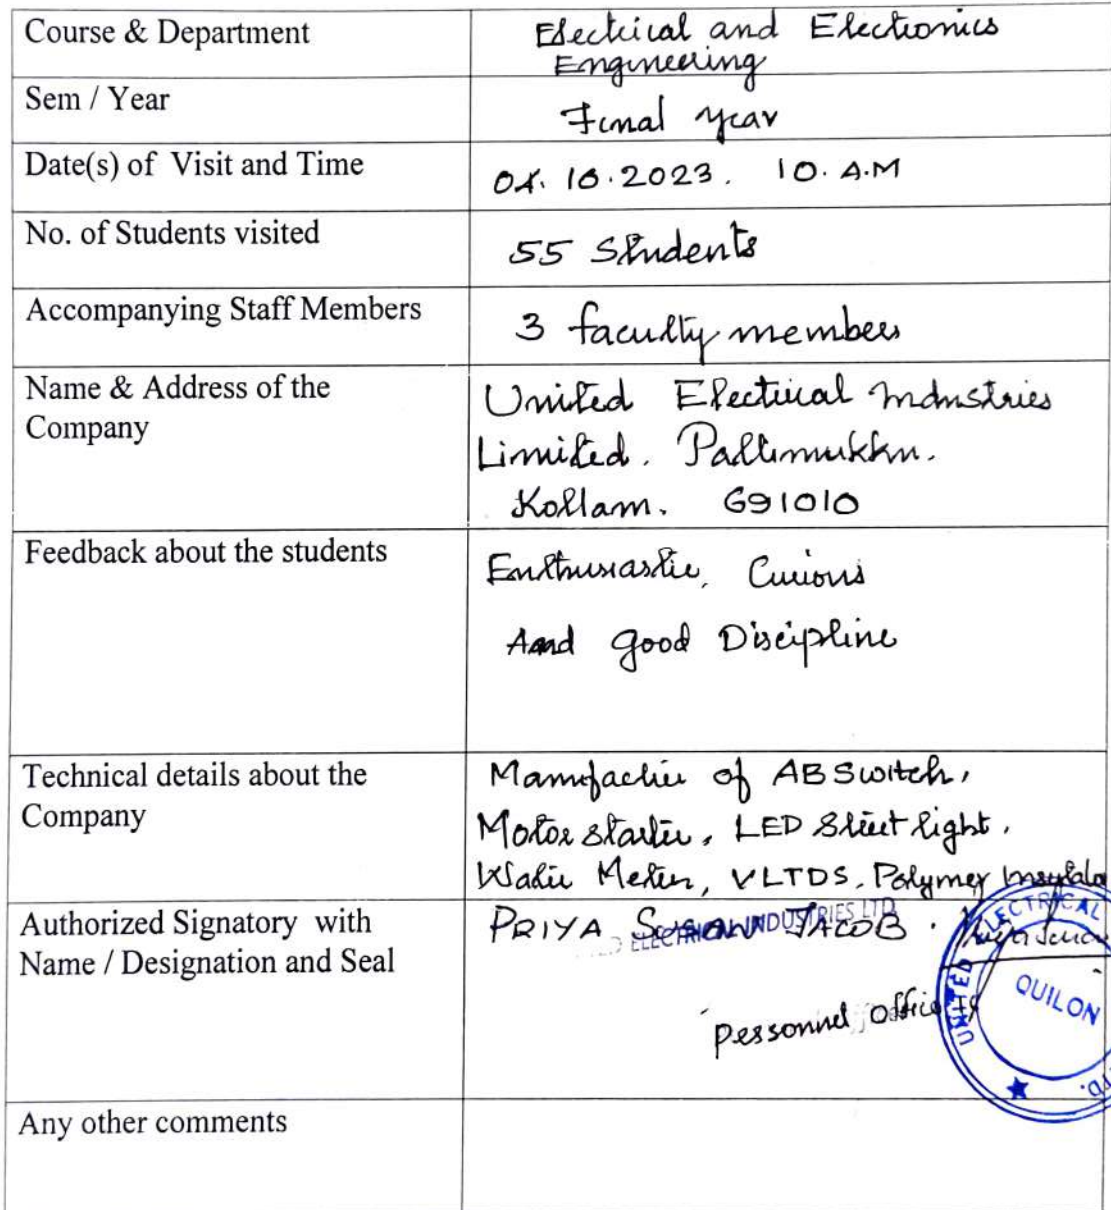 Course & Department
Electrical and Electronics
Engineering
Sem / Year
Final year
Date(s) of Visit and Time
10.2023. 10. A.M
No. of Students visited
55 Students
Accompanying Staff Members
3 faculty members
Name & Address of the
Company
United Electrical Industries
Limited. Pallimukku.
Kollam. 691010
Feedback about the students
Enthusiastic, Curious
And good Discipline
Technical details about the
Company
Manufacture of AB Switch,
Motor starter, LED Street light,
Water Meter, VLTDS, Polymer
Authorized Signatory with
Name / Designation and Seal
PRIYA SUSAN JACOB.
ELECTRICAL INDUSTRIES LTD
Personnel Officer
UNITED ELECTRICAL
QUILON
LTD.
Any other comments